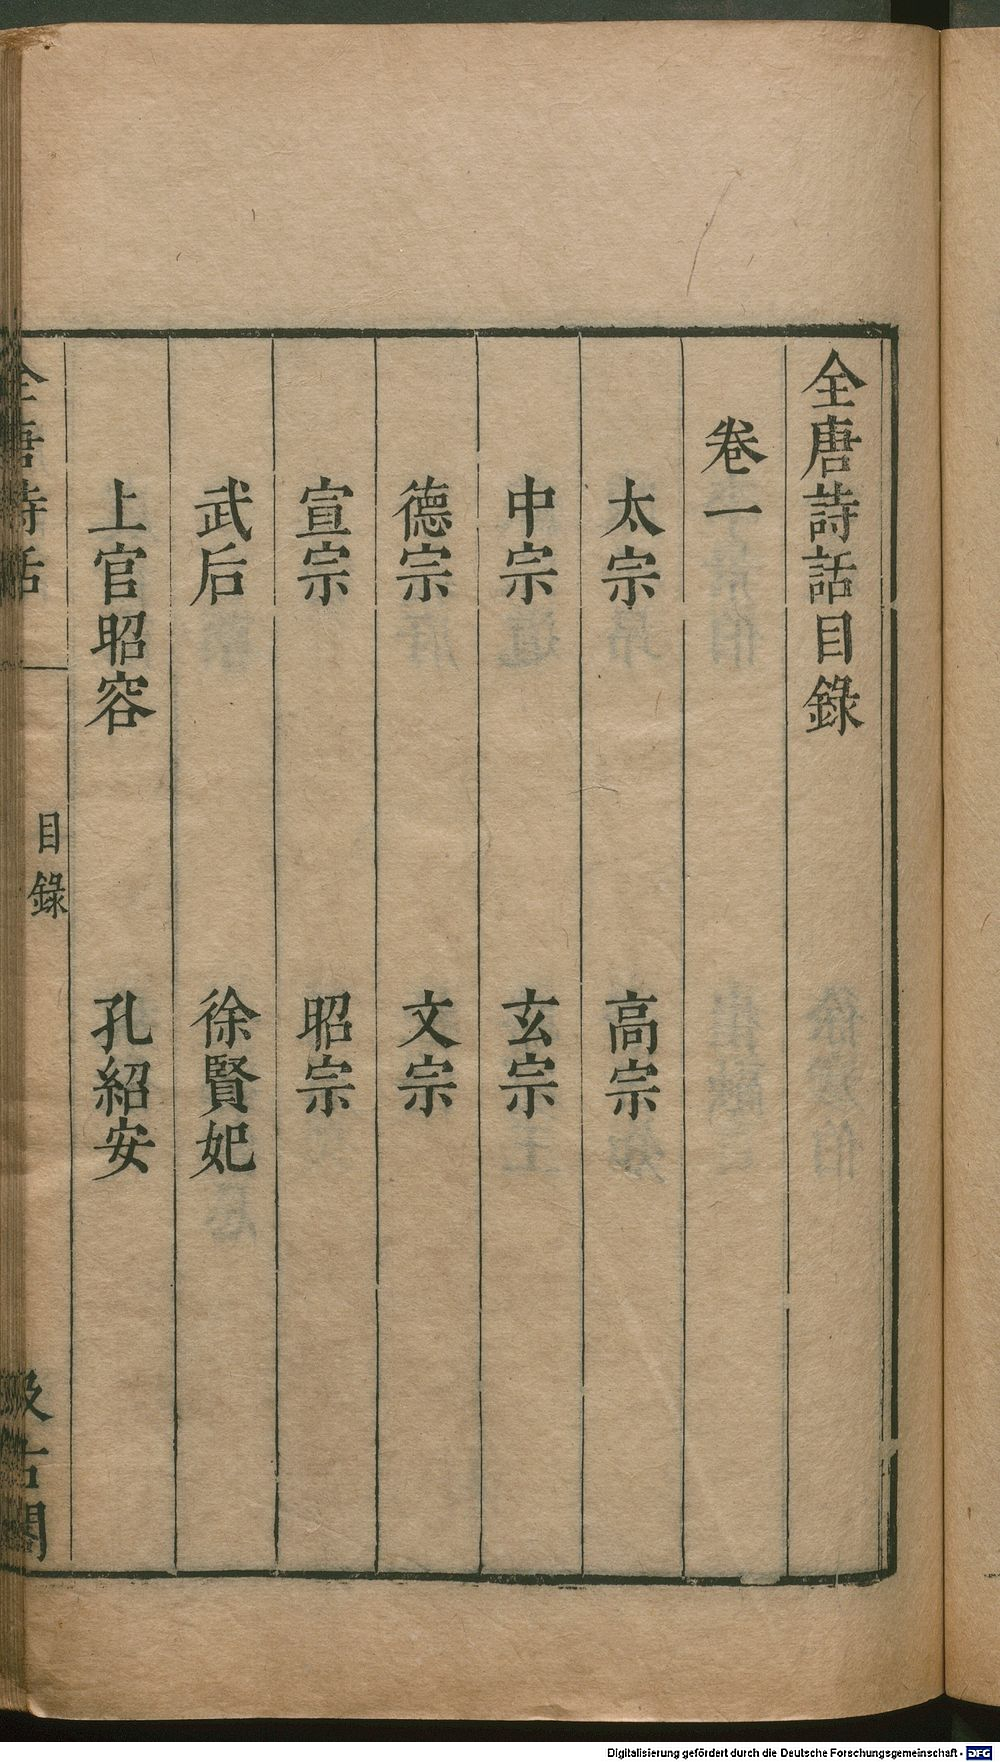 全唐詩話目錄
卷一
太宗
高宗
中宗
玄宗
德宗
文宗
宣宗
昭宗
武后
徐賢妃
上官昭容
孔紹安
全唐詩話
目錄
汲古閣
Digitalisierung gefördert durch die Deutsche Forschungsgemeinschaft - DFG